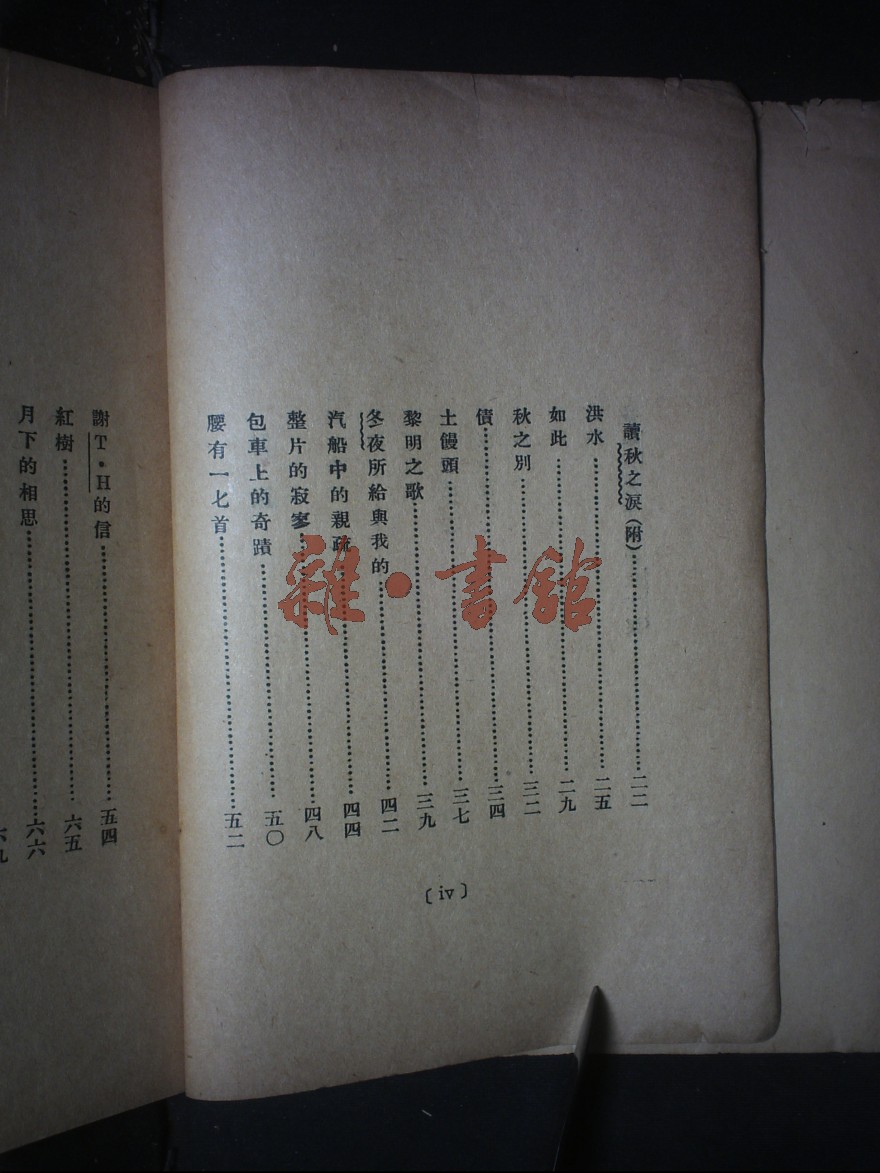 讀秋之淚(附)⋯⋯⋯⋯二二
洪水⋯⋯⋯⋯二五
如此⋯⋯⋯⋯二九
秋之別⋯⋯⋯⋯三二
債⋯⋯⋯⋯三四
土饅頭⋯⋯⋯⋯三七
黎明之歌⋯⋯⋯⋯三九
冬夜所給與我的⋯⋯⋯⋯四二
汽船中的親疏⋯⋯⋯⋯四四
整片的寂寥⋯⋯⋯⋯四八
包車上的奇蹟⋯⋯⋯⋯五〇
腰有一匕首⋯⋯⋯⋯五二
〔iv〕
謝T·H的信⋯⋯⋯⋯五四
紅樹⋯⋯⋯⋯六五
月下的相思⋯⋯⋯⋯六六
六九
雜·書館